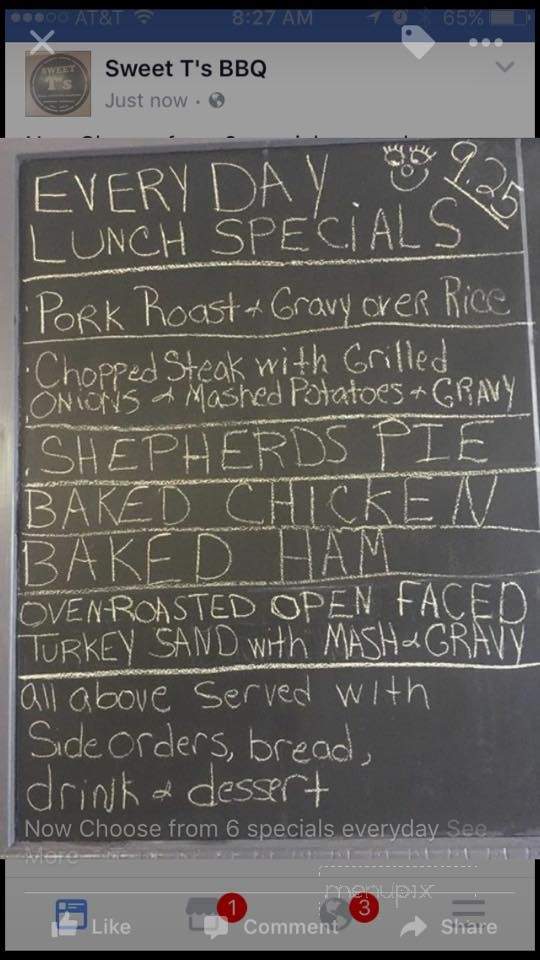 AT&T 8:27 AM 65%
SWEET T's
Sweet T's BBQ
Just now
EVERY DAY 9.25
LUNCH SPECiALS
PORK Roast & Gravy over Rice
Chopped Steak with Grilled
ONIONS & Mashed Potatoes + GRAVY
SHEPHERDS PIE
BAKED CHICKEN
BAKED HAM
OVEN-ROASTED OPEN FACED
TURKEY SAND with MASH & GRAVY
all above served with
Side orders, bread,
drink & dessert
Now Choose from 6 specials everyday See
More
menupix
1 3
Like Comment Share